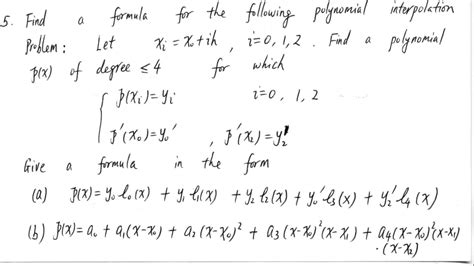 5. Find a formula for the following polynomial interpolation
Problem: Let xᵢ = x₀+ih, i=0, 1, 2. Find a polynomial
p(x) of degree ≤4 for which
{ p(xᵢ)=yᵢ i=0, 1, 2
p'(x₀)=y₀' , p'(x₂)=y₂'
Give a formula in the form
(a) p(x)=y₀l₀(x) + y₁l₁(x) + y₂l₂(x)+y₀'l₃(x)+y₂'l₄(x)
(b) p(x)=a₀+a₁(x-x₀) + a₂(x-x₀)² + a₃(x-x₀)²(x-x₁) + a₄(x-x₀)²(x-x₁)
·(x-x₂)